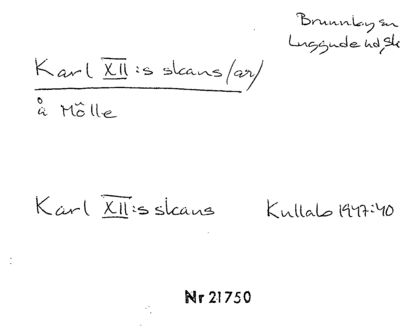 Brunnby sn
Luggude hd, Sk
Karl XII:s skans/ar/
å Mölle
Karl XII:s skans Kullabo 1947:40
Nr 21750